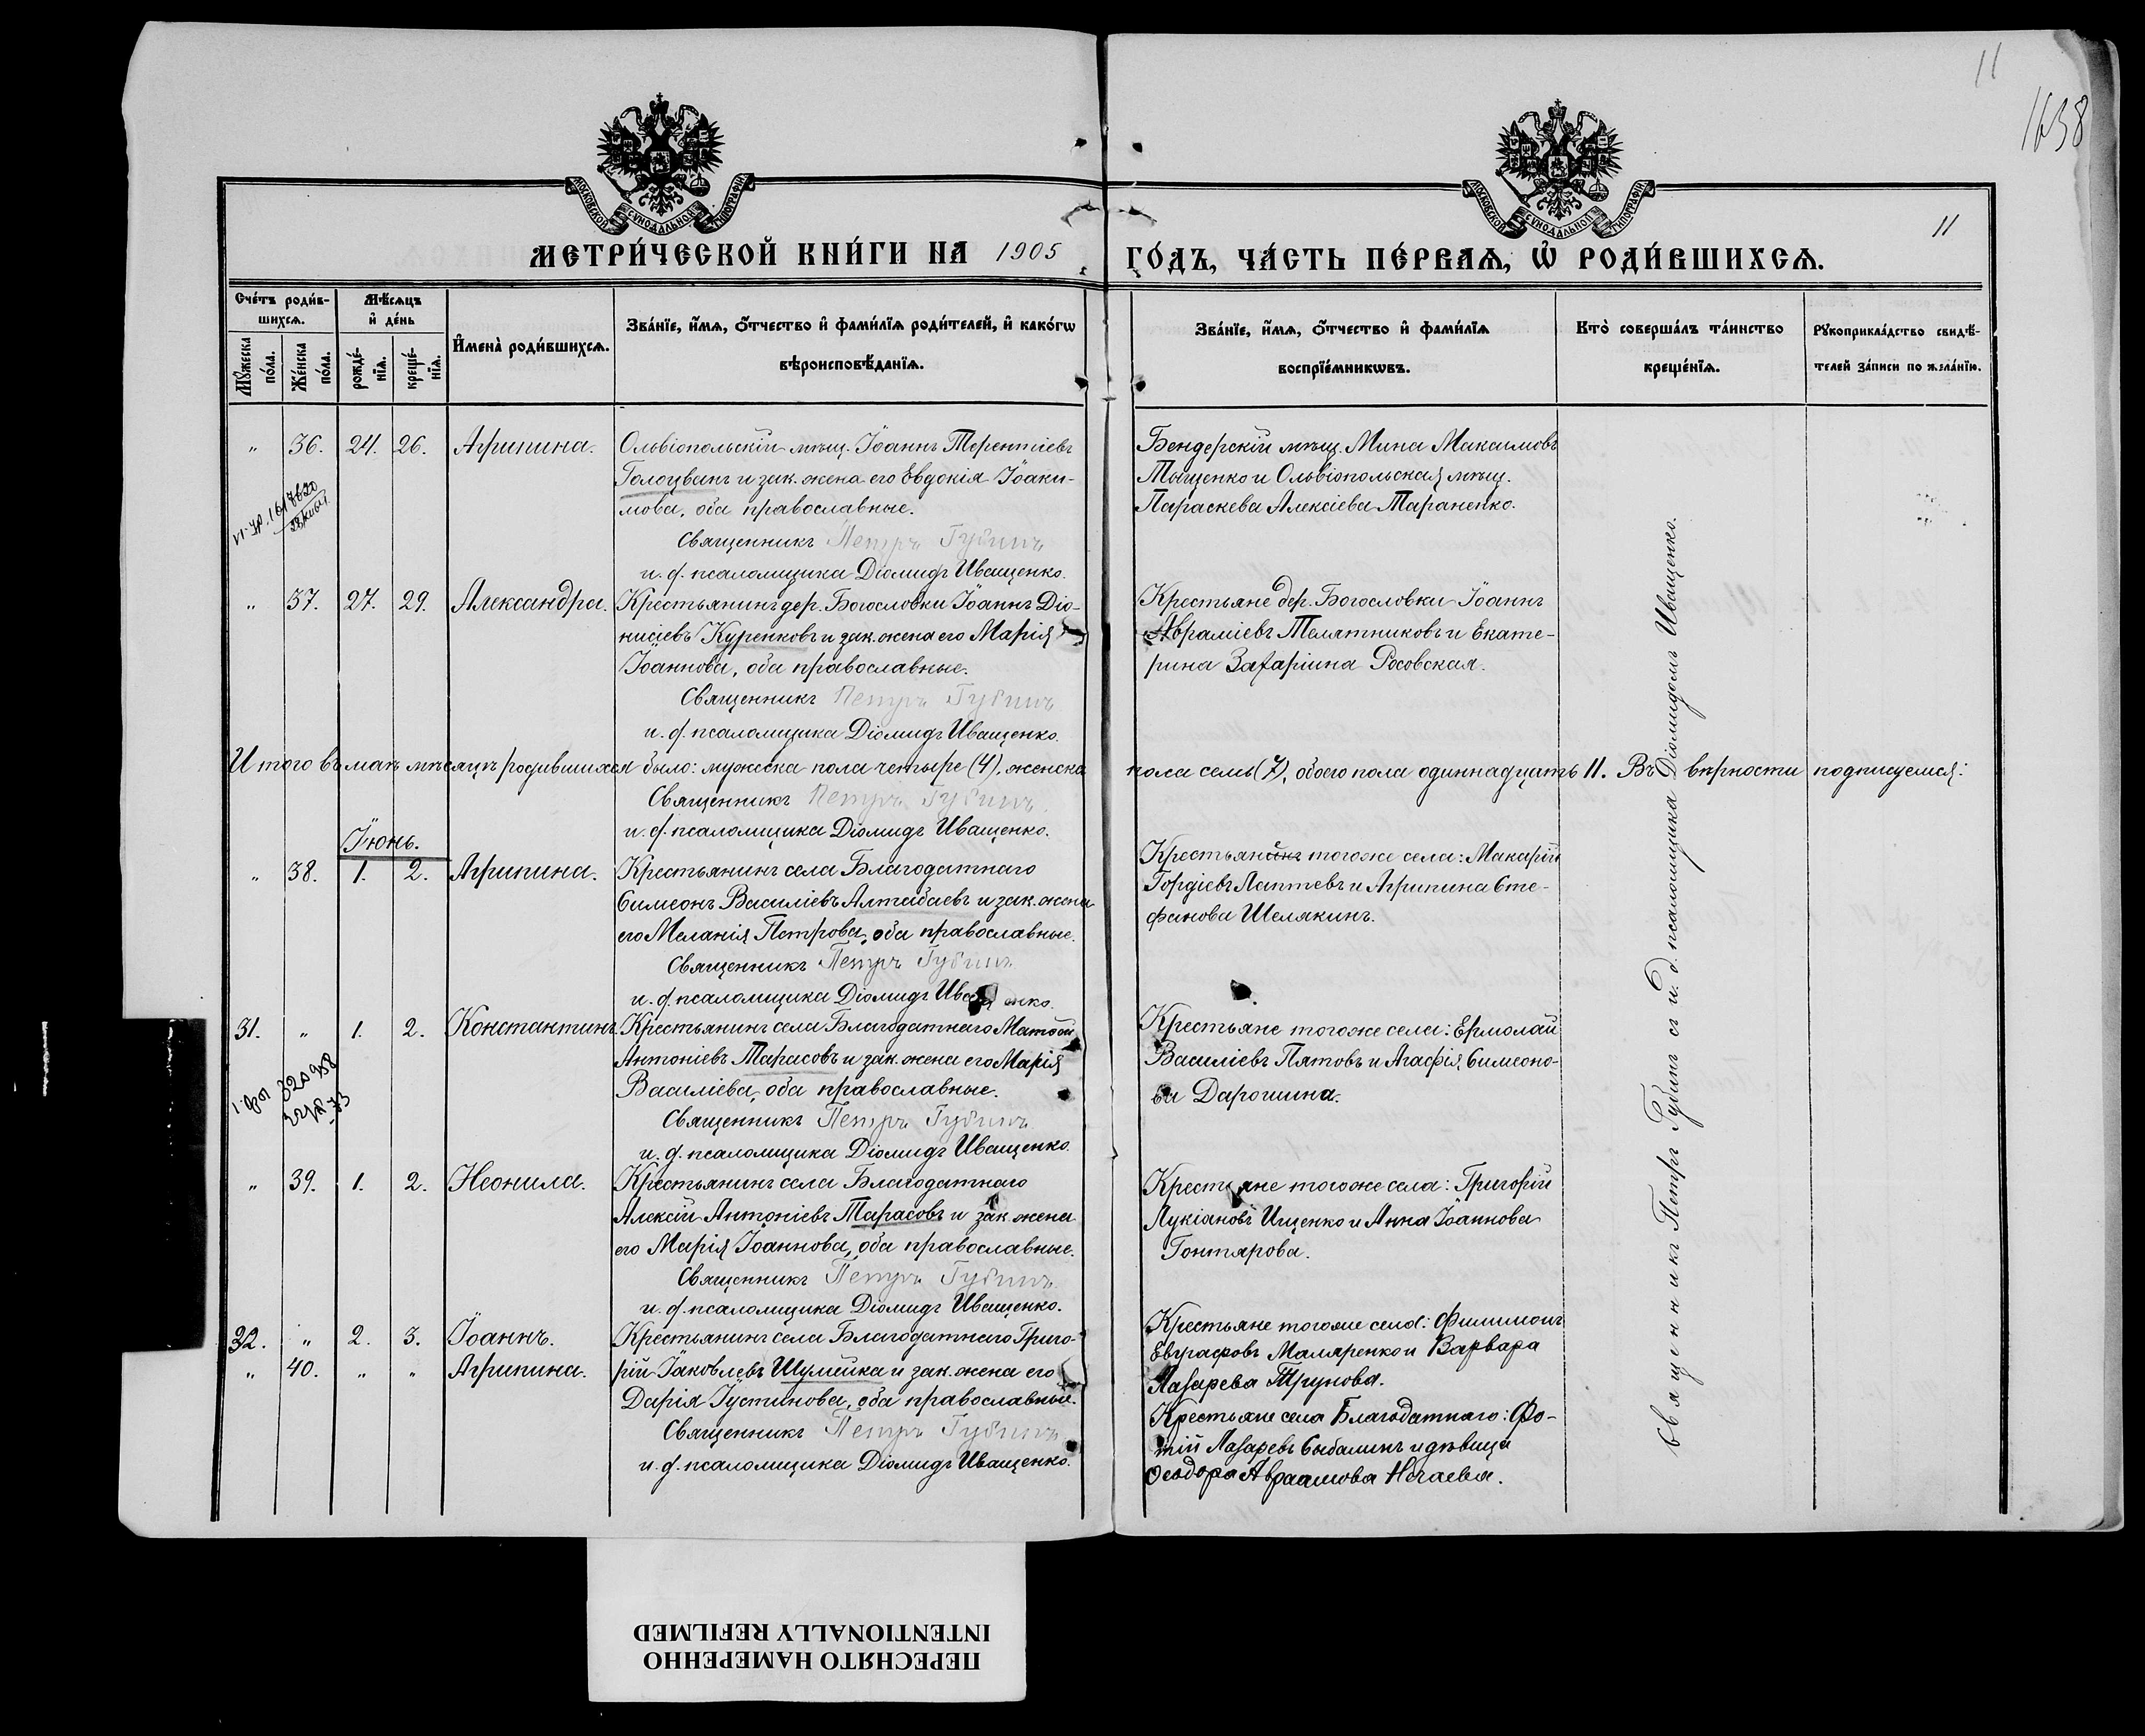 11
1638
МОСКОВСКОЙ СѴНОДАЛЬНОЙ ТИПОГРАФІИ
МОСКОВСКОЙ СѴНОДАЛЬНОЙ ТИПОГРАФІИ
11
МЕТРИ́ЧЕСКОЙ КНИ́ГИ НА 1905 ГО́ДЪ, ЧА́СТЬ ПЕ́РВАѦ, Ѡ РОДИ́ВШИХСѦ.
Сче́тъ роди́в-
шихсѧ.
Мꙋ́жеска по́ла.
Же́нска по́ла.
Мѣ́сѧцъ
и҆ де́нь
рожде́-
нїѧ.
креще́-
нїѧ.
И҆мена̀ роди́вшихсѧ.
Зва́нїе, и҆́мѧ, ѻ҆́тчество и҆ фами́лїѧ роди́телей, и҆ како́гѡ
вѣроисповѣ́данїѧ.
Зва́нїе, и҆́мѧ, ѻ҆́тчество и҆ фами́лїѧ
воспрїе́мникѡвъ.
Кто̀ соверша́лъ та́инство
креще́нїѧ.
Рꙋкоприкла́дство свидѣ́-
телей за́писи по жела́нїю.
" 36. 24. 26. Агрипина. Ольвіопольскій мѣщ. Іоаннъ Терентіевъ
Голоцванъ и зак. жена его Евдокія Іоаки-
мова, оба православные.
Священникъ Петръ Губинъ
и. д. псаломщика Діомидъ Иващенко.
Бендерскій мѣщ. Мина Максимовъ
Тыщенко и Ольвіопольская мѣщ.
Параскева Алексіева Тараненко.
" 37. 27. 29. Александра. Крестьянинъ дер. Богословки Іоаннъ Діо-
нисіевъ Куренковъ и зак. жена его Марія
Іоаннова, оба православные.
Священникъ Петръ Губинъ
и. д. псаломщика Діомидъ Иващенко.
Крестьяне дер. Богословки Іоаннъ
Авраміевъ Телятниковъ и Екате-
рина Захаріина Росовская.
Итого въ маѣ мѣсяцѣ родившихся было: мужеска пола четыре (4), женска пола семь (7), обоего пола одиннадцать 11. Въ вѣрности подписуемся:
Священникъ Петръ Губинъ
и. д. псаломщика Діомидъ Иващенко.
Іюнь.
" 38. 1. 2. Агрипина. Крестьянинъ села Благодатнаго
Симеонъ Василіевъ Алтабаевъ и зак. жена
его Меланія Петрова, оба православные.
Священникъ Петръ Губинъ
и. д. псаломщика Діомидъ Иващенко.
Крестьянинъ того же села: Макарій
Гордіевъ Лаптевъ и Агрипина Сте-
фанова Шелякинъ.
31. " 1. 2. Константинъ. Крестьянинъ села Благодатнаго Матѳій
Антоніевъ Тарасовъ и зак. жена его Марія
Василіева, оба православные.
Священникъ Петръ Губинъ
и. д. псаломщика Діомидъ Иващенко.
Крестьяне того же села: Ермолай
Василіевъ Пятовъ и Агафія Симеоно-
ва Дарошина.
" 39. 1. 2. Неонила. Крестьянинъ села Благодатнаго
Алексій Антоніевъ Тарасовъ и зак. жена
его Марія Іоаннова, оба православные.
Священникъ Петръ Губинъ
и. д. псаломщика Діомидъ Иващенко.
Крестьяне того же села: Григорій
Лукіановъ Ищенко и Анна Іоаннова
Гонтярова.
32. " 2. 3. Іоаннъ. Крестьянинъ села Благодатнаго Григо-
" 40. " " Агрипина. рій Іаковлевъ Шумейка и зак. жена его
Дарія Іустинова, оба православные.
Священникъ Петръ Губинъ
и. д. псаломщика Діомидъ Иващенко.
Крестьяне того же села: Филимонъ
Евграфовъ Маляренко и Варвара
Лазарева Трунова.
Крестьяне села Благодатнаго: Фо-
тій Лазаревъ Сыбалинъ и дѣвица
Ѳеодора Авраамова Нечаева.
Священникъ Петръ Губинъ съ и. д. псаломщика Діомидомъ Иващенко.
ПЕРЕСНЯТО НАМЕРЕННО
INTENTIONALLY REFILMED